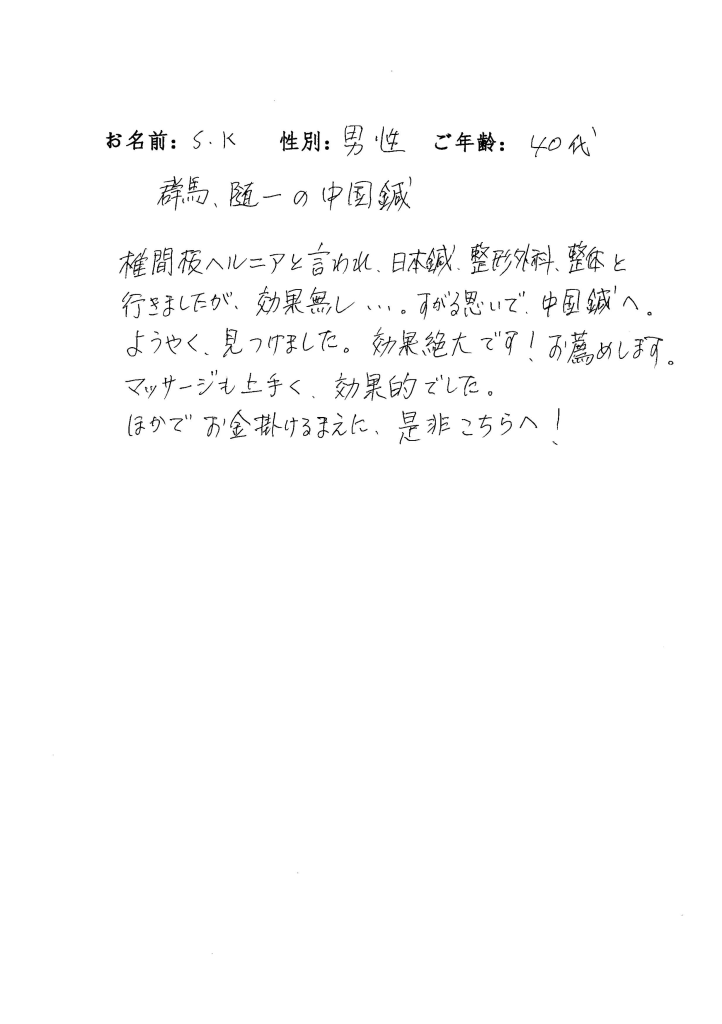 お名前： S.K 性別： 男性 ご年齢： 40代
群馬、随一の中国鍼
椎間板ヘルニアと言われ、日本鍼、整形外科、整体と
行きましたが、効果無し…。すがる思いで、中国鍼へ。
ようやく、見つけました。効果絶大です！お薦めします。
マッサージも上手く、効果的でした。
ほかでお金掛けるまえに、是非こちらへ！